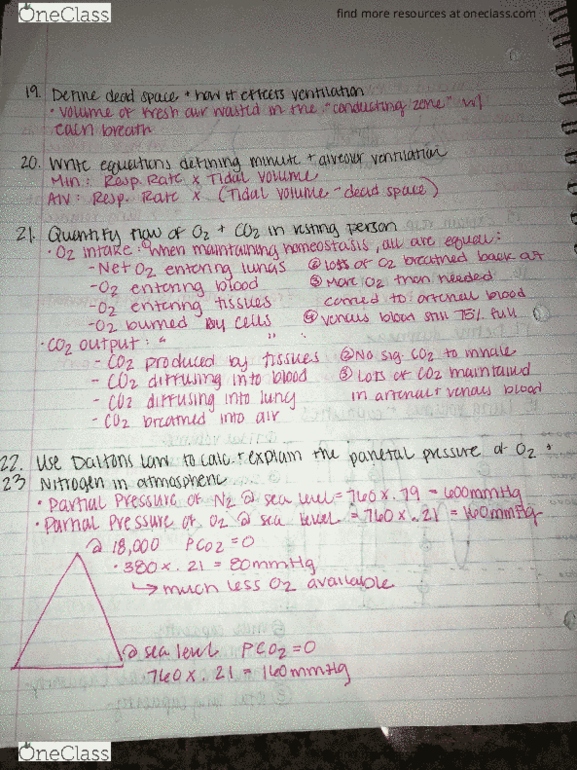 OneClass
find more resources at oneclass.com
19. Define dead space + how it effects ventilation
• volume of fresh air wasted in the "conducting zone" w/
each breath
20. Write equations defining minute + alveolar ventilation
Min: Resp. Rate x Tidal volume
Alv: Resp. Rate x (Tidal volume - dead space)
21. Quantify flow of O2 + CO2 in resting person
• O2 intake: "when maintaining homeostasis, all are equal:
- Net O2 entering lungs
- O2 entering blood
- O2 entering tissues
- O2 burned by cells
② loss of O2 breathed back out
③ More O2 than needed
carried to arterial blood
④ venous blood still 75% full
• CO2 output: " " "
- CO2 produced by tissues
- CO2 diffusing into blood
- CO2 diffusing into lung
- CO2 breathed into air
② No sig. CO2 to inhale
③ Lots of CO2 maintained
in arterial + venous blood
22. Use Daltons Law to calc. + explain the partial pressure of O2 +
23 Nitrogen in atmospheric
• Partial Pressure of N2 @ sea level = 760 x .79 = 600mmHg
• Partial Pressure of O2 @ sea level = 760 x .21 = 160mmHg
@ 18,000 PCO2 = 0
• 380 x .21 = 80mmHg
↳ much less O2 available
@ sea level PCO2 = 0
• 760 x .21 = 160mmHg
OneClass